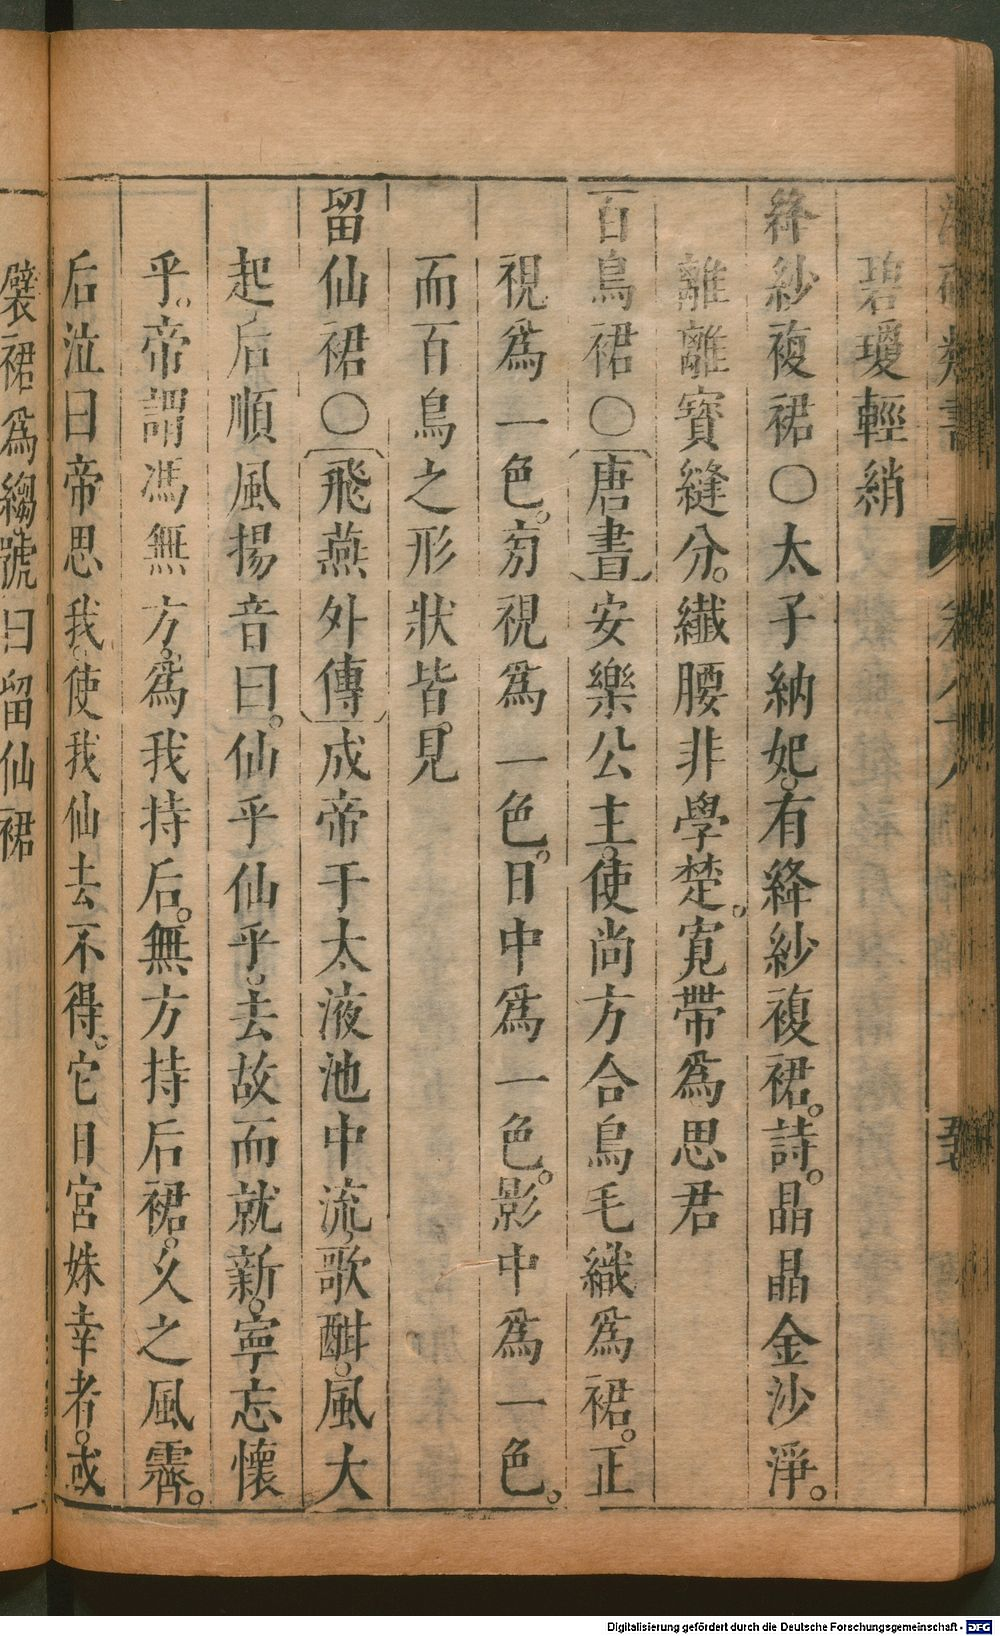 碧瓊輕綃
絳紗複裙○太子納妃。有絳紗複裙。詩。晶晶金沙淨。
離離寶縫分。纖腰非學楚。寛帶爲思君
百鳥裙○〔唐書〕安樂公主。使尚方合鳥毛織爲裙。正
視爲一色。旁視爲一色。日中爲一色。影中爲一色。
而百鳥之形狀皆。見
留仙裙○〔飛燕外傳〕成帝于太液池中流。歌酣。風大
起。后順風揚音曰。仙乎仙乎。去故而就新。寧忘懷
乎。帝謂馮無方。爲我持后。無方持后裙。久之風霽。
后泣曰帝思我。使我仙去不得。它日宮姝幸者。或
襞裙爲縐。號曰留仙裙
Digitalisierung gefördert durch die Deutsche Forschungsgemeinschaft - DFG